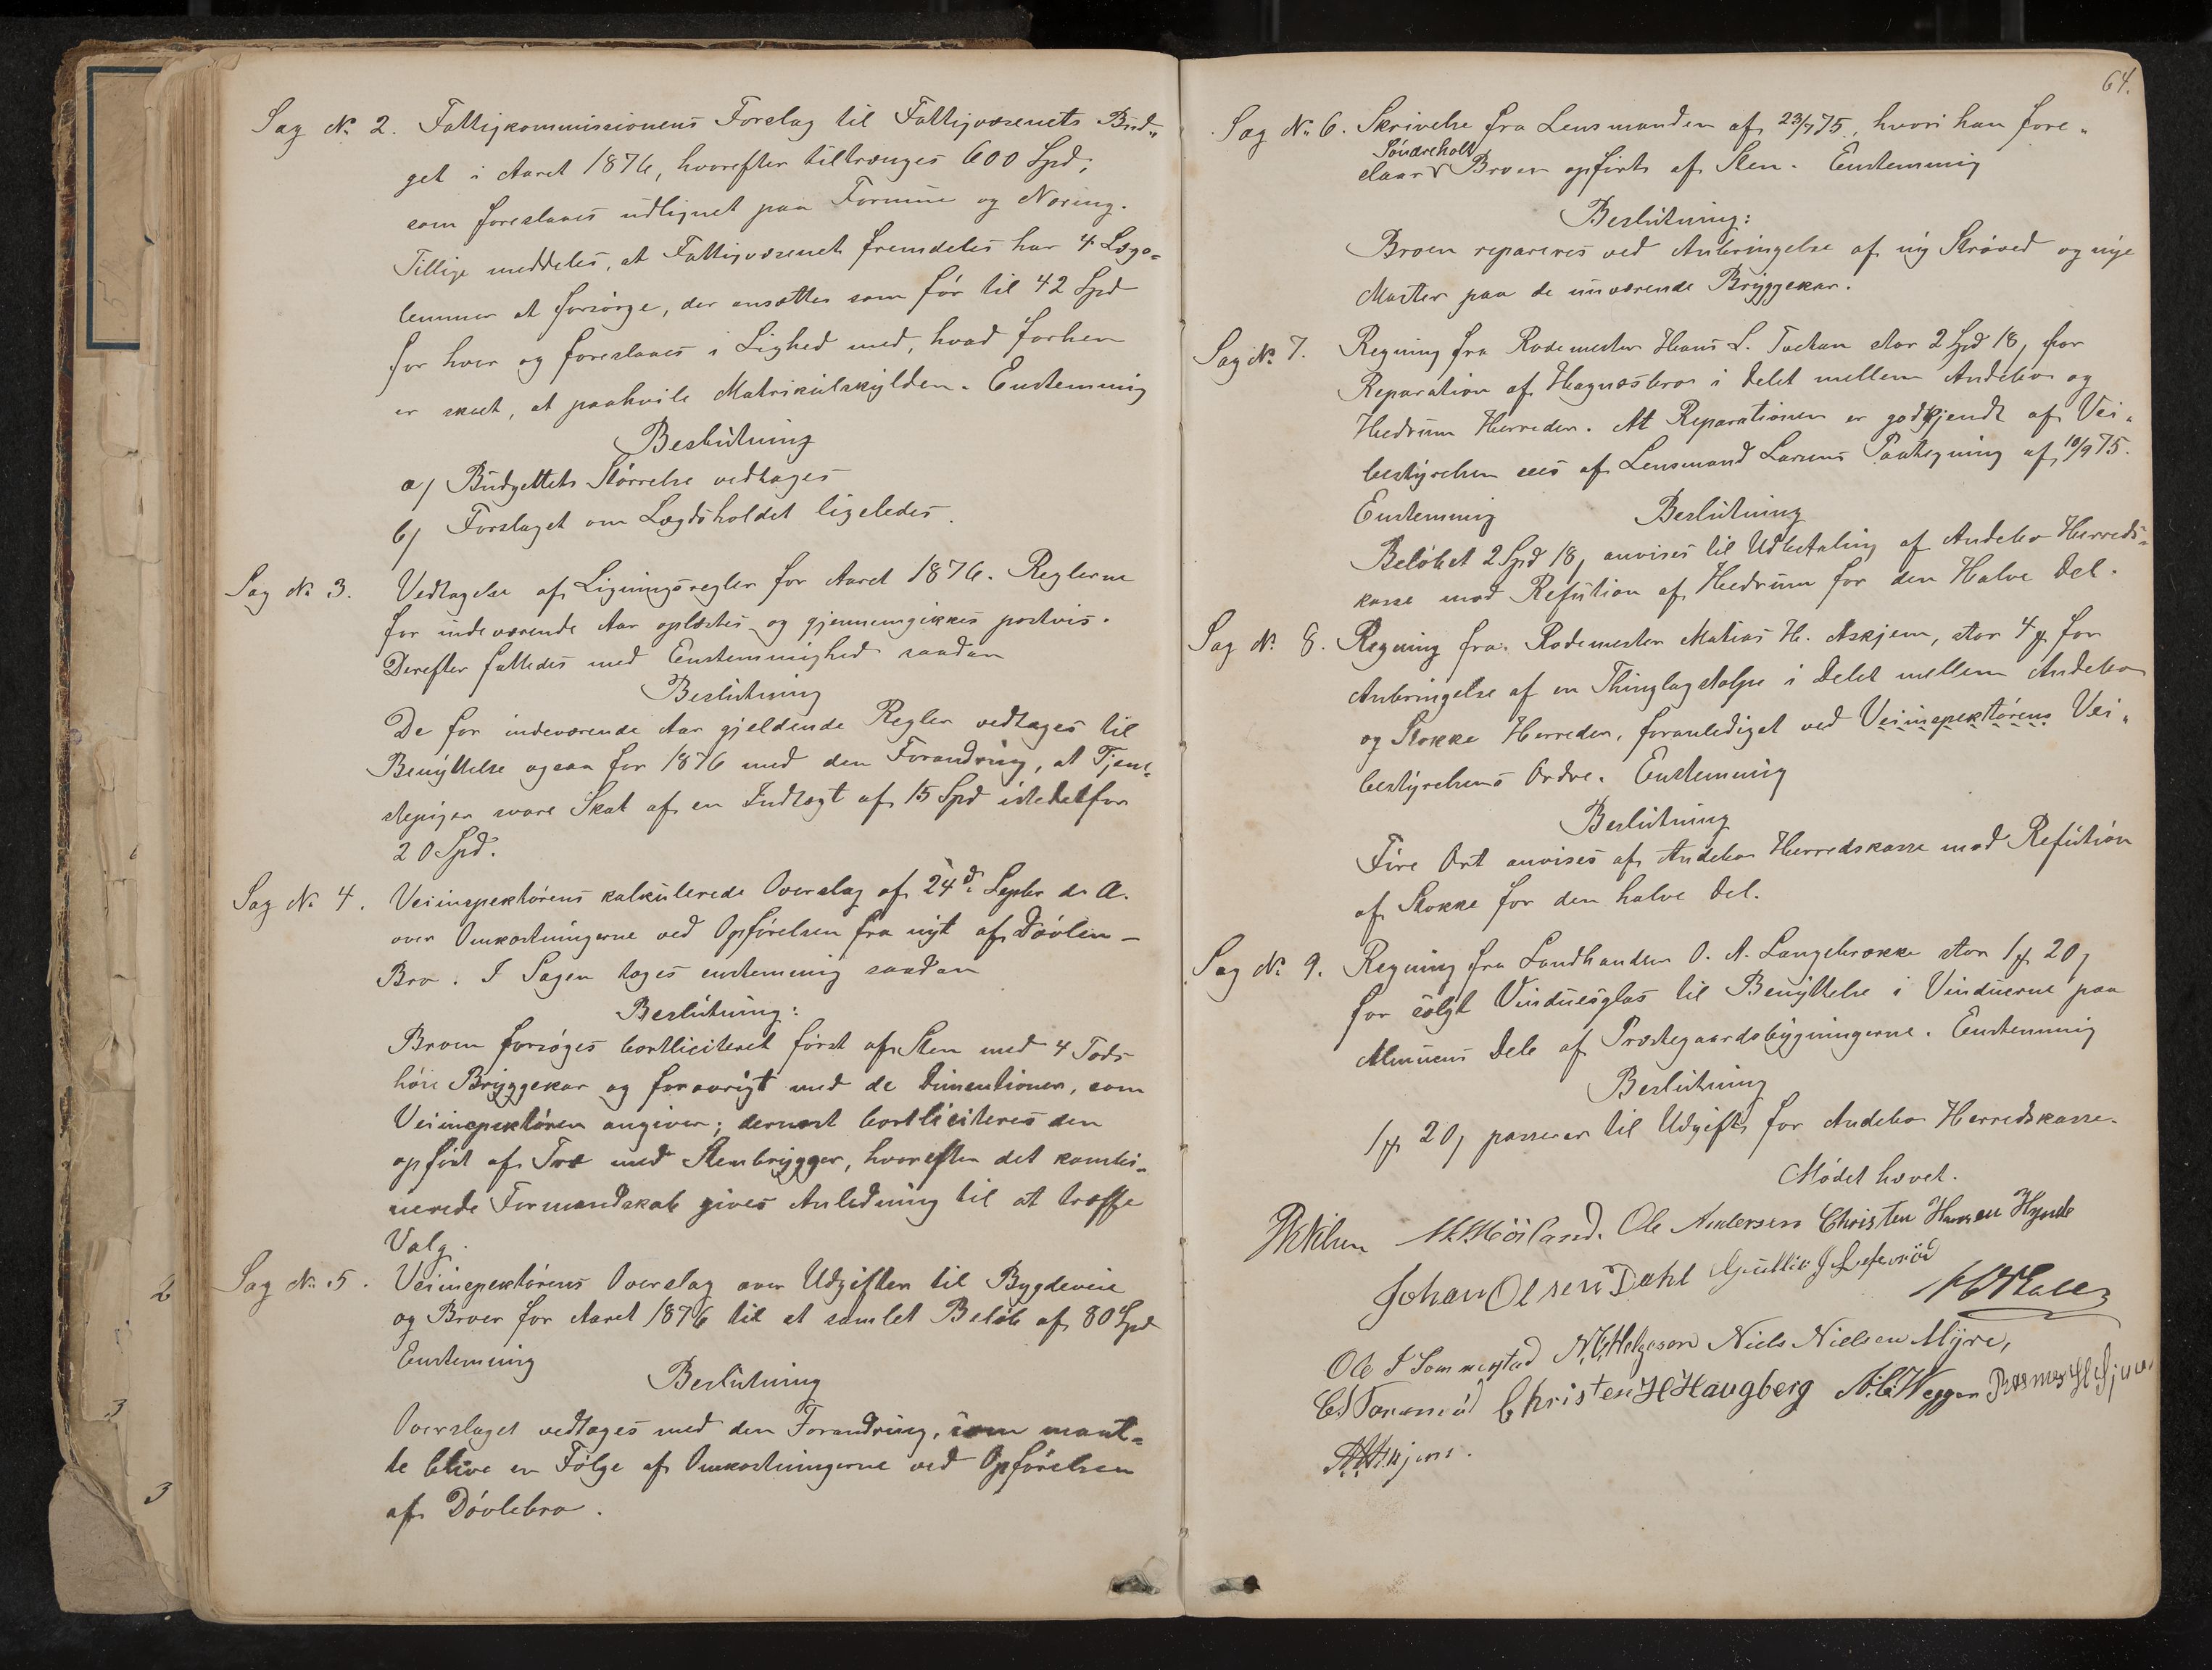 Sag № 2. Fattigkommissionens Forslag til Fattigvæsenets Bud„
get i Aaret 1876, hvorefter tiltrænges 600 Spd;
som foreslaaes udlignet paa Formue og Næring.
Tillige meddeles, at Fattigvæsenet fremdeles har 4 Lægs=
lemmer at forsørge, der ansættes som før til 42 Spd
for hver og foreslaaes i Lighed med, hvad forhen
er skeet, at paahvile Matrikulskylden. Enstemmig
Beslutning
a) Budgettets Størrelse vedtages
b) Forslaget om Lægdsholdet ligeledes.
Sag № 3. Vedtagelse af Ligningsregler for Aaret 1876. Reglerne
for indeværende Aar oplæstes og gjennemgikkes postvis.
Derefter fattedes med Enstemmighed saadan
Beslutning
De for indeværende Aar gjeldende Regler vedtages til
Benyttelse ogsaa for 1876 med den Forandring, at Tjene„
stepiger svare Skat af en Indtægt af 15 Spd istedetfor
20 Spd.
Sag № 4. Veiinspektørens kalkulerede Overslag af 24d. Septbr d. A.
over Omkostningerne ved Opførelsen fra nyt af Døvlen–
Bro. I Sagen toges enstemmig saadan
Beslutning:
Broen forsøges bortliciteret først af Sten med 4 Fods
høie Bryggekar og forøvrigt med de Dimentioner, som
Veiinspektøren angiver; dernæst bortliciteres den
opført af Træ med Stenbrygger, hvorefter det kombi„
nerede Formandskab gives Anledning til at træffe
Valg.
Sag № 5. Veiinspektørens Overslag over Udgifter til Bygdeveie
og Broer for Aaret 1876 til et samlet Beløb af 80 Spd
Enstemmig
Beslutning
Overslaget vedtages med den Forandring, som maat=
te blive en Følge af Omkostningerne ved Opførelsen
af Døvlebro.
64.
Sag № 6. Skrivelse fra Lensmanden af 23/7 75, hvori han fore„
Sønderholt
slaar Broen opført af Sten. Enstemmig
Beslutning:
Broen repareres ved Anbringelse af ny Strøved og nye
Master paa de nuværende Bryggekar.
Sag № 7. Regning fra Rodemester Hans L. stor 2 Spd 18, for
Reparation af Hagnæsbro i Delet mellem Andebo og
Hedrum Herreder. At Reparationen er godkjendt af Vei„
bestyrelsen sees af Lensmand Larsens Paategning af 10/9 75.
Enstemmig Beslutning
Beløbet 2 Spd 18, anvises til Udbetaling af Andebo Herreds„
kasse mod Refution af Hedrum for den Halve Del.
Sag № 8. Regning fra Rodemester Matias H. Askjem, stor 4 ƒ for
Anbringelse af en Thinglagstolpe i Delet mellem Andebo
og Stokke Herreder, foranlediget ved Veiinspektørens Vei„
bestyrelsens Ordre. Enstemmig
Beslutning
Fire Ort anvises af Andebo Herredskasse mod Refution
af Stokke for den halve Del.
Sag № 9. Regning fra Landhandler O. A. Langebrække stor 1 ƒ 20,
for solgt Vinduesglas til Benyttelse i Vinduerne paa
Almuens Dele af Præstegaardsbygningerne. Enstemmig
Beslutning
1 ƒ 20, passerer til Udgift for Andebo Herredskasse.
Mødet hævet.
Ole Andersen Christen Hansen Hynde
Johan Olsen Dahl Gullik J
Ole I Sommerstad Helgesen Niels Nielsen Myre,
Christen H Haugberg